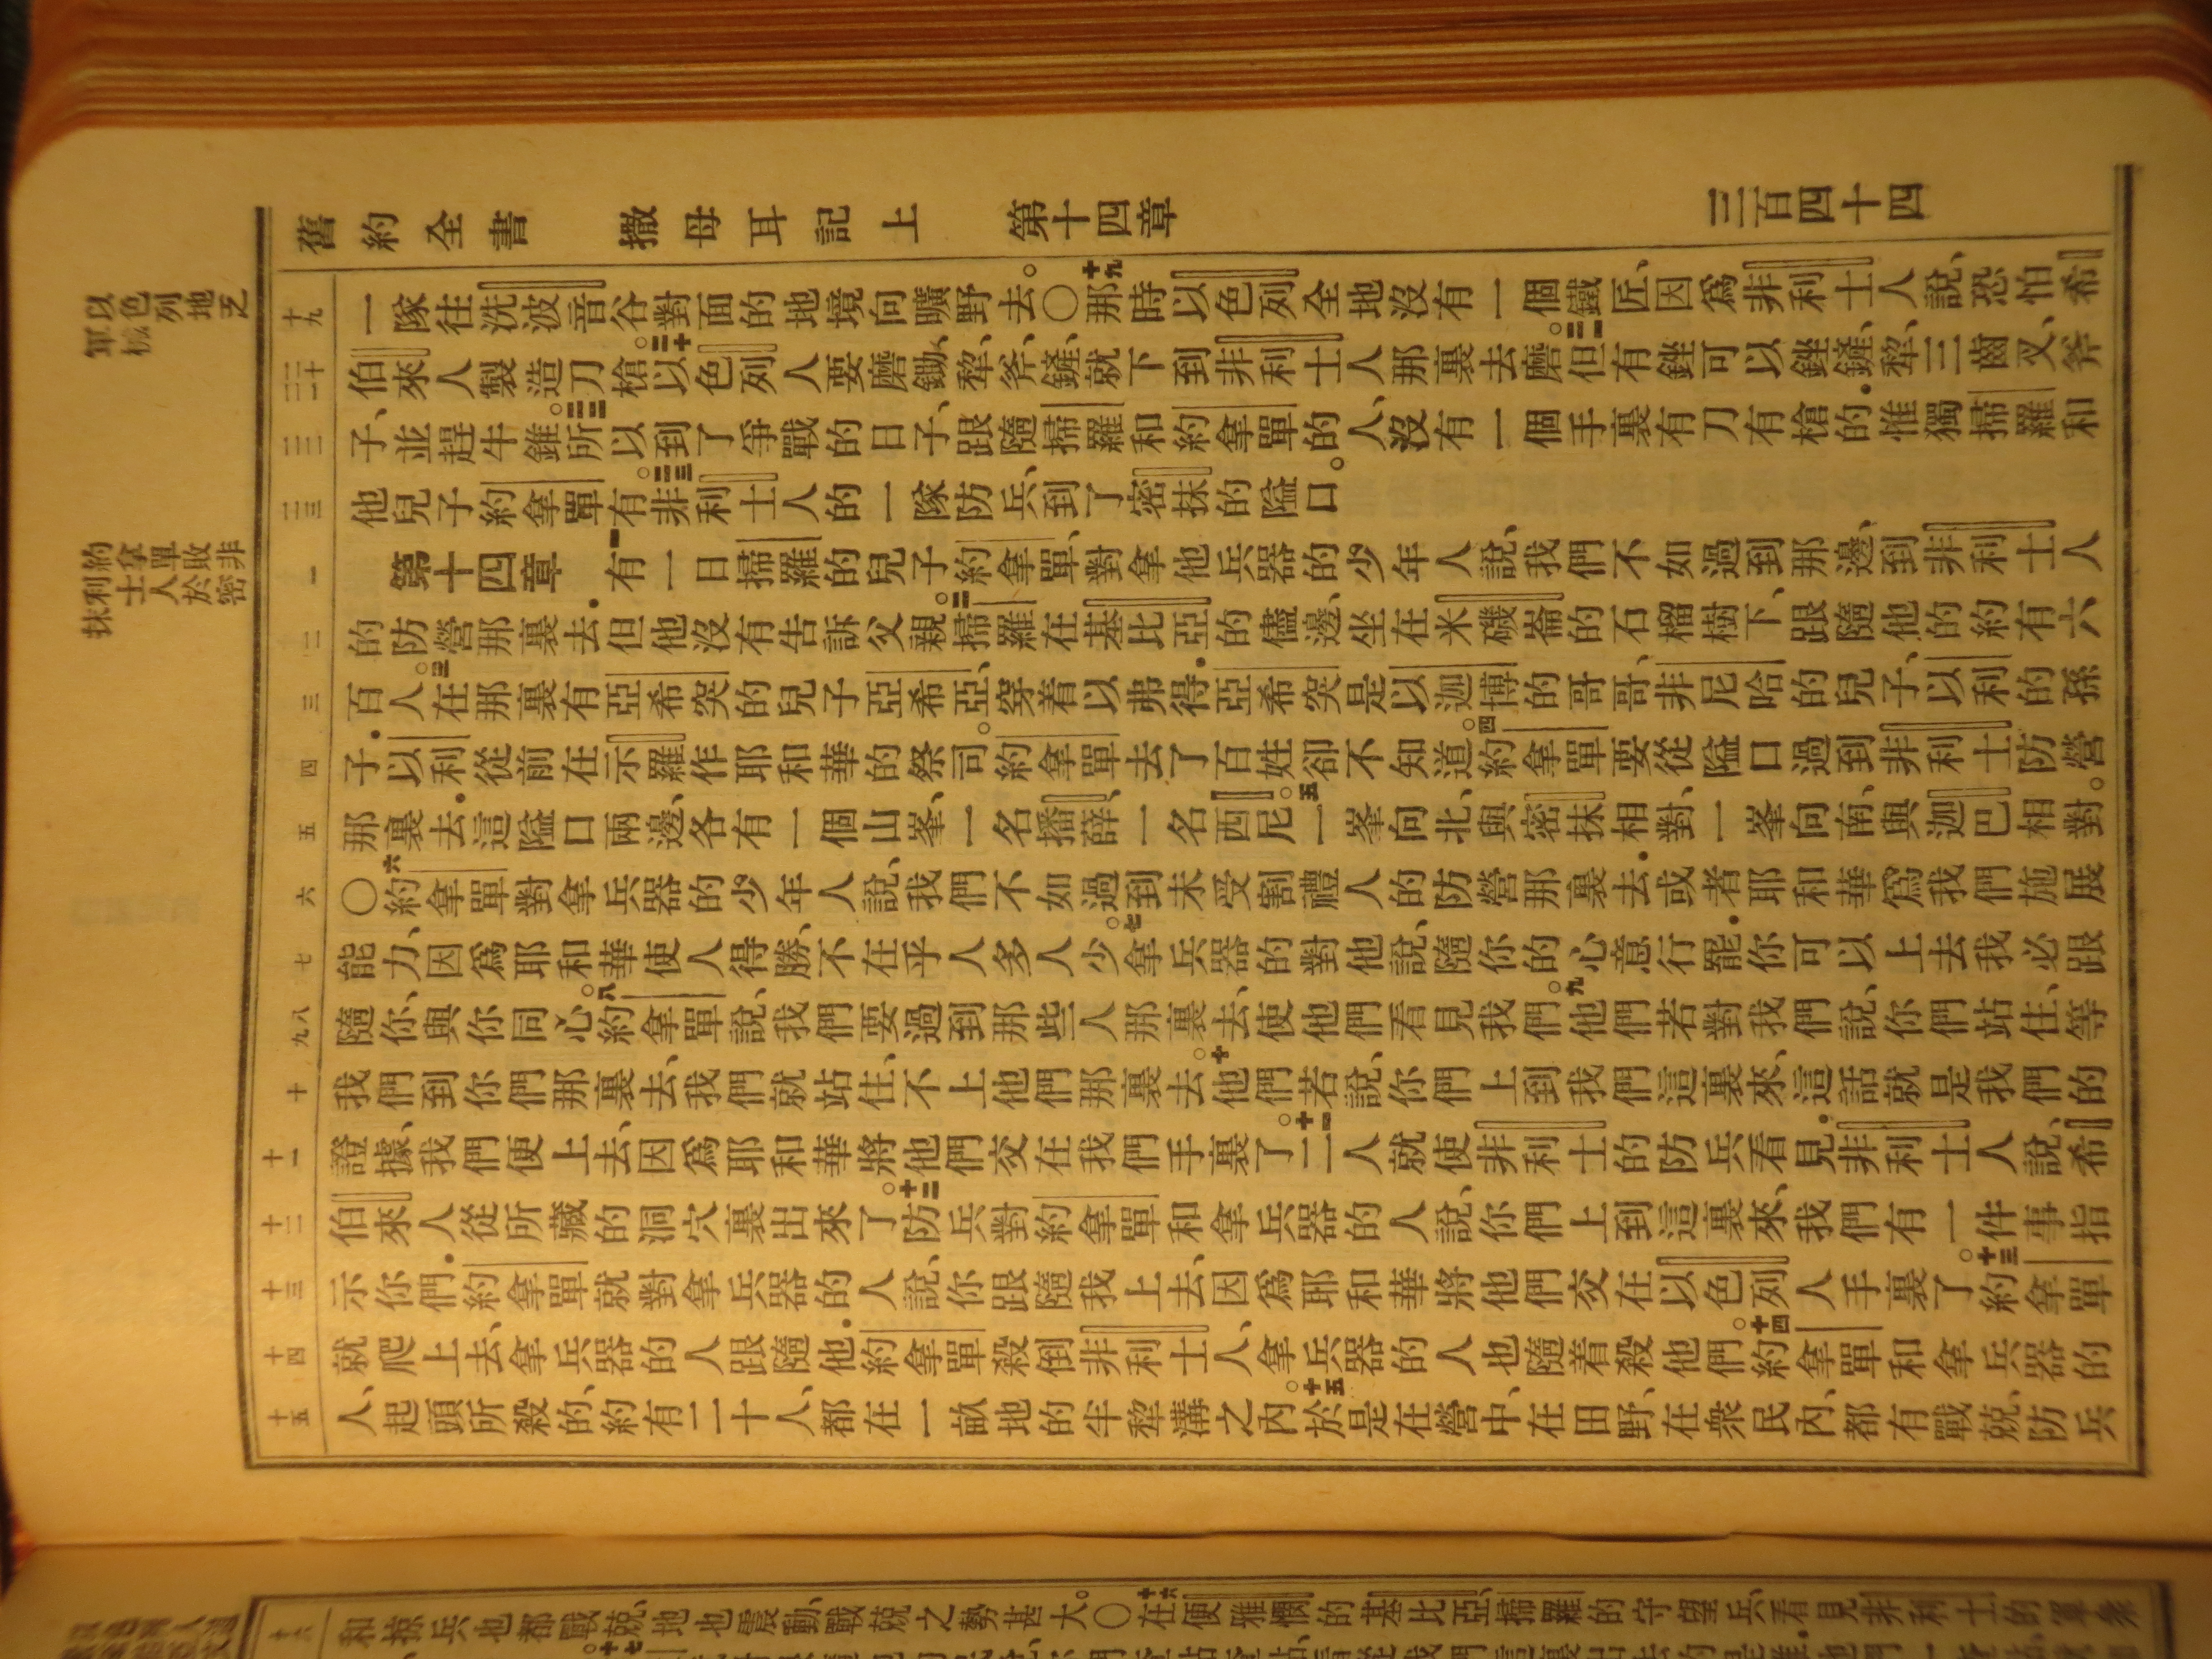 舊約全書 撒母耳記上 第十四章 三百四十四
以色列地乏
軍械
十九
一隊往洗波音谷對面的地境向曠野去。〇十九那時以色列全地沒有一個鐵匠、因爲非利士人說、恐怕希
二十
二一
伯來人製造刀槍。二十以色列人要磨鋤、犂、斧、鏟、就下到非利士人那裏去磨。二一但有銼可以銼鏟、犂、三齒叉、斧
二二
子、並趕牛錐。二二所以到了爭戰的日子、跟隨掃羅和約拿單的人、沒有一個手裏有刀有槍的.惟獨掃羅和
二三
他兒子約拿單有。二三非利士人的一隊防兵、到了密抹的隘口。
約拿單敗非
利士人於密
抹
一
第十四章 一有一日掃羅的兒子約拿單、對拿他兵器的少年人說、我們不如過到那邊、到非利士人
二
的防營那裏去.但他沒有告訴父親。二掃羅在基比亞的儘邊、坐在米磯崙的石榴樹下、跟隨他的約有六
三
百人。三在那裏有亞希突的兒子亞希亞、穿着以弗得.亞希突是以迦博的哥哥、非尼哈的兒子、以利的孫
四
子.以利從前在示羅作耶和華的祭司。約拿單去了百姓卻不知道。四約拿單要從隘口過到非利士防營
五
那裏去.這隘口兩邊、各有一個山峯、一名播薛、一名西尼。五一峯向北、與密抹相對、一峯向南、與迦巴相對。
六
〇六約拿單對拿兵器的少年人說、我們不如過到未受割禮人的防營那裏去.或者耶和華爲我們施展
七
能力、因爲耶和華使人得勝、不在乎人多人少。七拿兵器的對他說、隨你的心意行罷.你可以上去我必跟
八
九
隨你、與你同心。八約拿單說、我們要過到那些人那裏去、使他們看見我們。九他們若對我們說、你們站住、等
十
我們到你們那裏去、我們就站住、不上他們那裏去。十他們若說、你們上到我們這裏來、這話就是我們的
十一
證據、我們便上去、因爲耶和華將他們交在我們手裏了。十一二人就使非利士的防兵看見.非利士人說、希
十二
伯來人從所藏的洞穴裏出來了。十二防兵對約拿單和拿兵器的人說、你們上到這裏來、我們有一件事指
十三
示你們.約拿單就對拿兵器的人說、你跟隨我上去、因爲耶和華將他們交在以色列人手裏了。十三約拿單
十四
就爬上去、拿兵器的人跟隨他.約拿單殺倒非利士人、拿兵器的人也隨着殺他們。十四約拿單和拿兵器的
十五
人、起頭所殺的、約有二十人、都在一畝地的半犂溝之內。十五於是在營中、在田野、在衆民內、都有戰兢、防兵
十六
和掠兵也都戰兢、地也震動、戰兢之勢甚大。〇十六在便雅憫的基比亞、掃羅的守望兵、看見非利士的軍衆